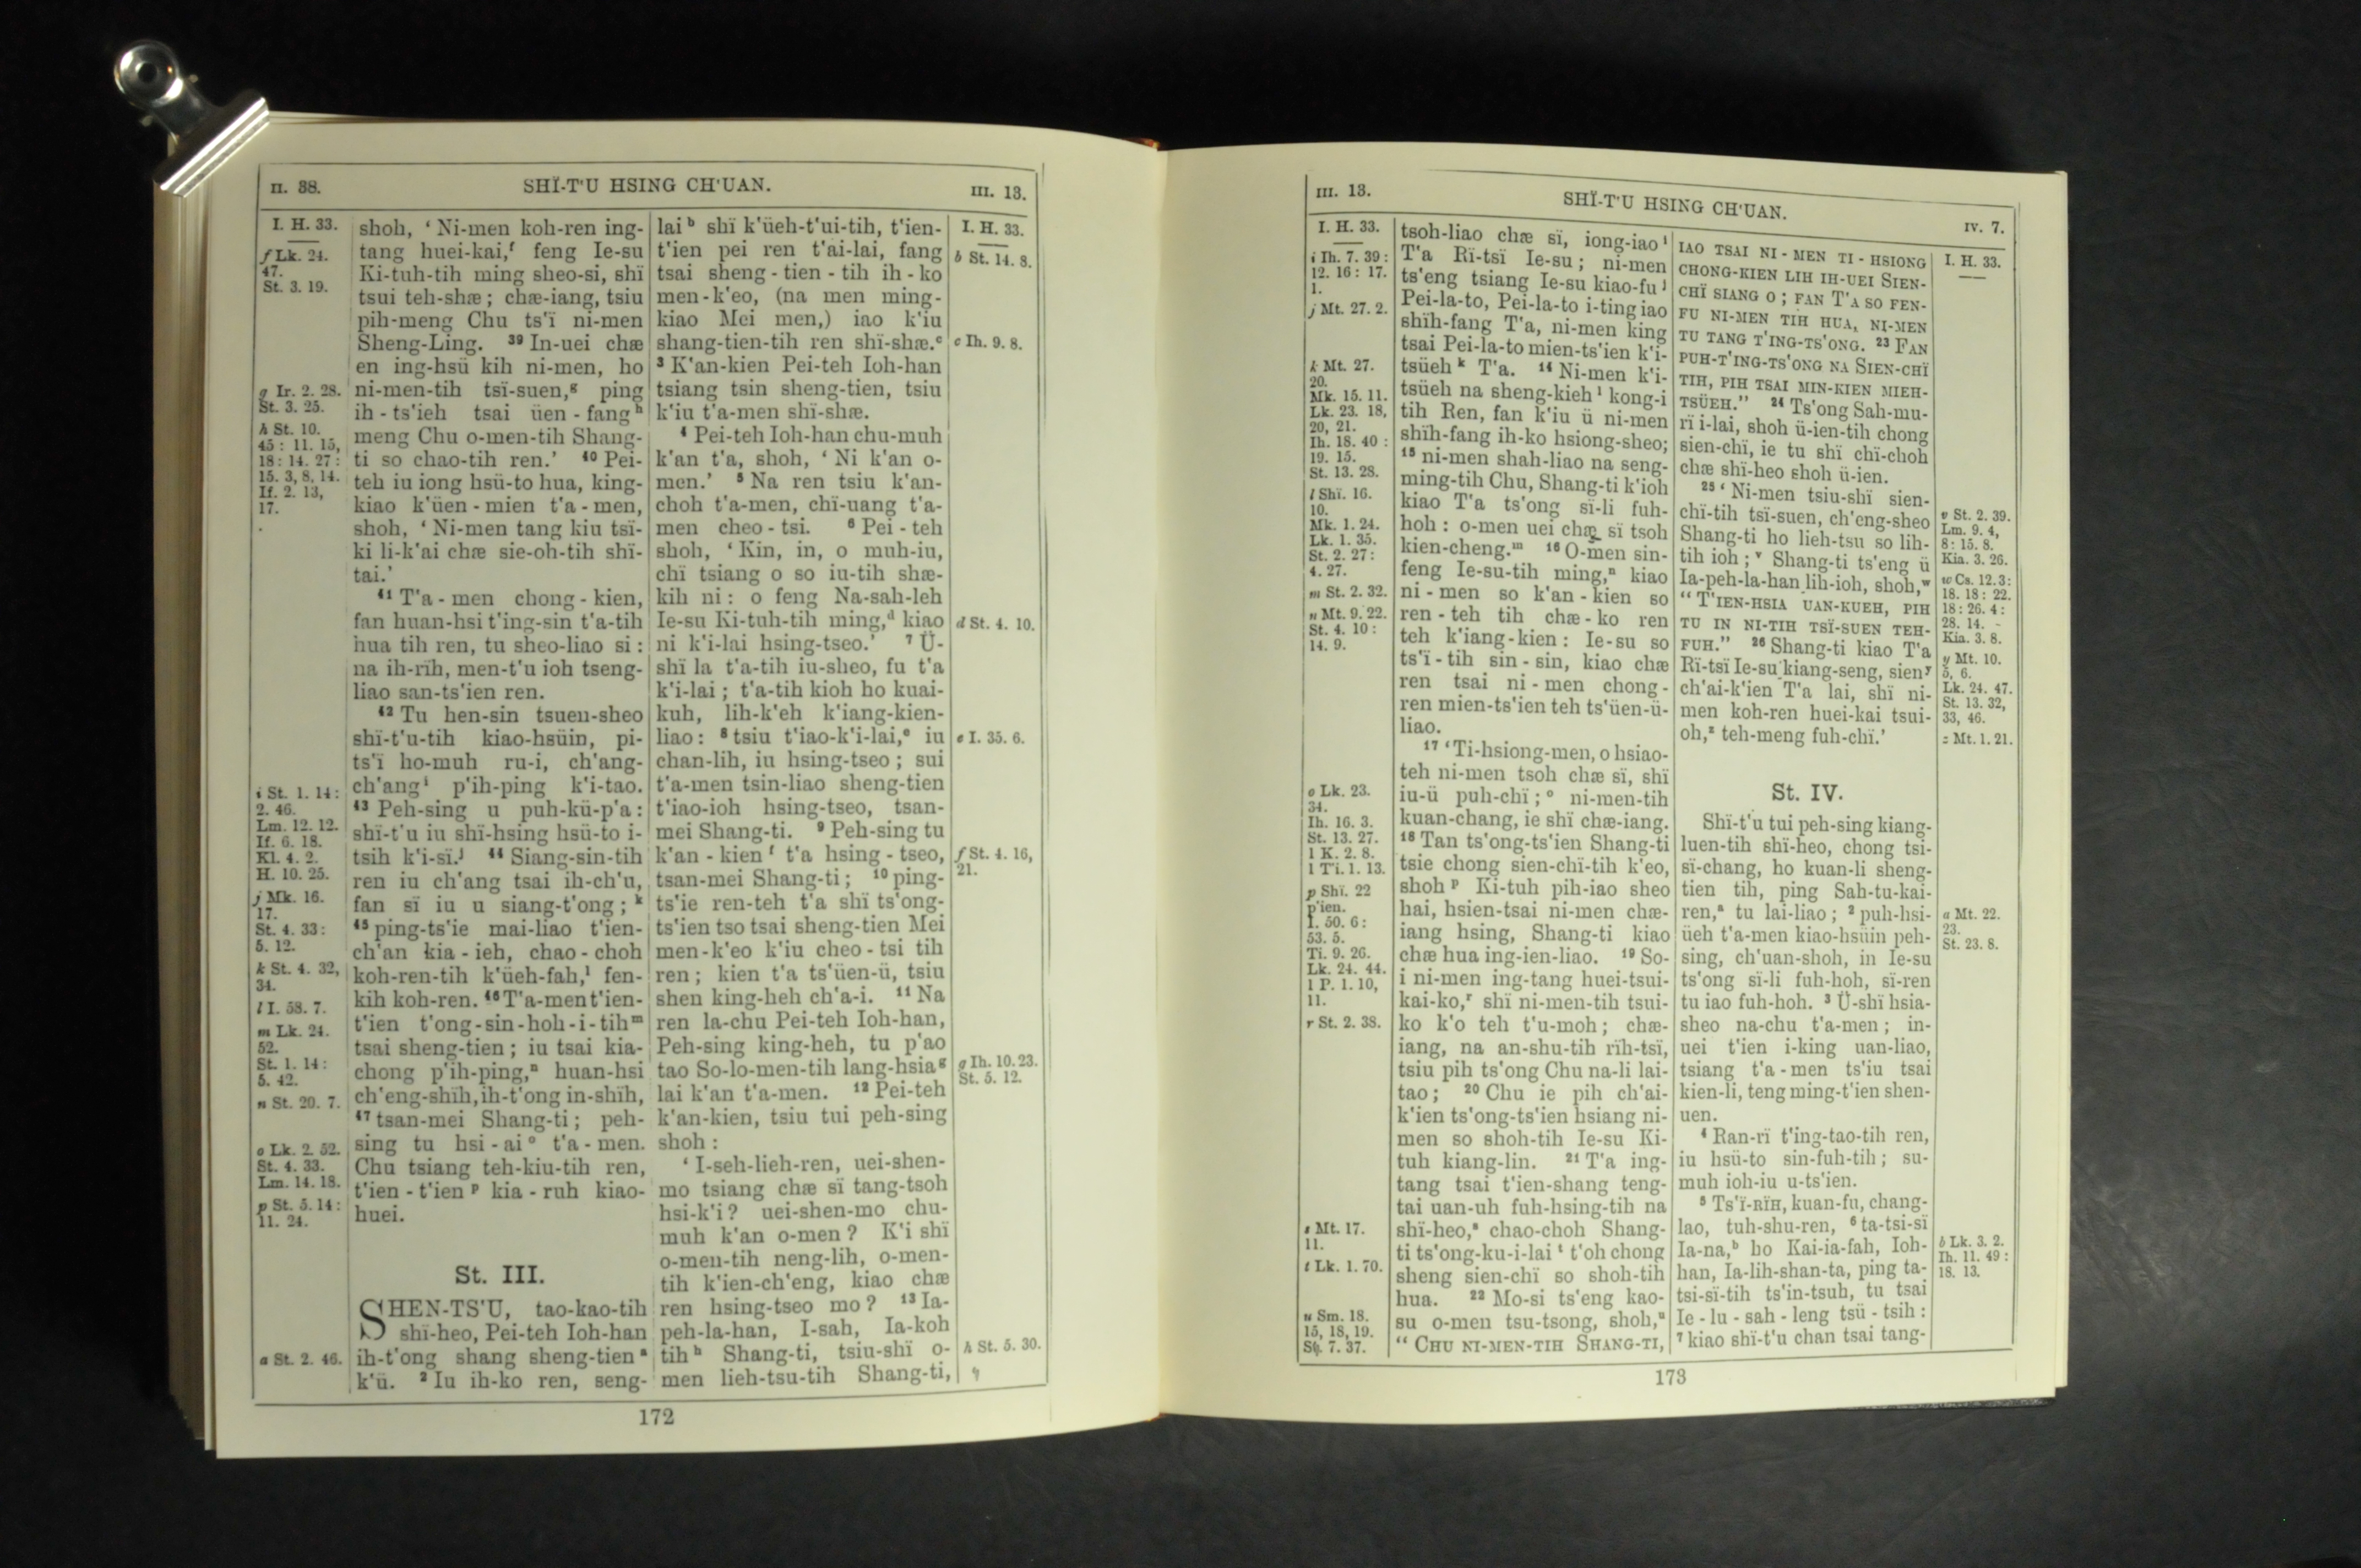 II. 38.
SHÏ-T'U HSING CH'UAN.
III. 13.
I. H. 33.
f Lk. 24.
47.
St. 3. 19.
g Ir. 2. 28.
St. 3. 25.
h St. 10.
45 : 11. 15,
18 : 14. 27 :
15. 3, 8, 14.
If. 2. 13,
17.
i St. 1. 14 :
2. 46.
Lm. 12. 12.
If. 6. 18.
Kl. 4. 2.
H. 10. 25.
j Mk. 16.
17.
St. 4. 33 :
5. 12.
k St. 4. 32,
34.
l I. 58. 7.
m Lk. 24.
52.
St. 1. 14 :
5. 42.
n St. 20. 7.
o Lk. 2. 52.
St. 4. 33.
Lm. 14. 18.
p St. 5. 14 :
11. 24.
a St. 2. 46.
shoh, ‘ Ni-men koh-ren ing-
tang huei-kai,f feng Ie-su
Ki-tuh-tih ming sheo-si, shï
tsui teh-shæ ; chæ-iang, tsiu
pih-meng Chu ts'ï ni-men
Sheng-Ling. 39 In-uei chæ
en ing-hsü kih ni-men, ho
ni-men-tih tsï-suen,g ping
ih - ts'ieh tsai üen - fang h
meng Chu o-men-tih Shang-
ti so chao-tih ren.’ 40 Pei-
teh iu iong hsü-to hua, king-
kiao k'üen - mien t'a - men,
shoh, ‘ Ni-men tang kiu tsï-
ki li-k'ai chæ sie-oh-tih shï-
tai.’
41 T'a - men chong - kien,
fan huan-hsi t'ing-sin t'a-tih
hua tih ren, tu sheo-liao si :
na ih-rïh, men-t'u ioh tseng-
liao san-ts'ien ren.
42 Tu hen-sin tsuen-sheo
shï-t'u-tih kiao-hsüin, pi-
ts'ï ho-muh ru-i, ch'ang-
ch'ang i p'ih-ping k'i-tao.
43 Peh-sing u puh-kü-p'a :
shï-t'u iu shï-hsing hsü-to i-
tsih k'i-sï.j 44 Siang-sin-tih
ren iu ch'ang tsai ih-ch'u,
fan sï iu u siang-t'ong ; k
45 ping-ts'ie mai-liao t'ien-
ch'an kia - ieh, chao - choh
koh-ren-tih k'üeh-fah,l fen-
kih koh-ren. 46 T'a-men t'ien-
t'ien t'ong-sin-hoh-i-tih m
tsai sheng-tien ; iu tsai kia-
chong p'ih-ping,n huan-hsi
ch'eng-shïh, ih-t'ong in-shïh,
47 tsan-mei Shang-ti ; peh-
sing tu hsi - ai o t'a - men.
Chu tsiang teh-kiu-tih ren,
t'ien - t'ien p kia - ruh kiao-
huei.
St. III.
SHEN-TS'U, tao-kao-tih
shï-heo, Pei-teh Ioh-han
ih-t'ong shang sheng-tien a
k'ü. 2 Iu ih-ko ren, seng-
lai b shï k'üeh-t'ui-tih, t'ien-
t'ien pei ren t'ai-lai, fang
tsai sheng - tien - tih ih - ko
men - k'eo, (na men ming-
kiao Mei men,) iao k'iu
shang-tien-tih ren shï-shæ.c
3 K'an-kien Pei-teh Ioh-han
tsiang tsin sheng-tien, tsiu
k'iu t'a-men shï-shæ.
4 Pei-teh Ioh-han chu-muh
k'an t'a, shoh, ‘ Ni k'an o-
men.’ 5 Na ren tsiu k'an-
choh t'a-men, chï-uang t'a-
men cheo - tsi. 6 Pei - teh
shoh, ‘ Kin, in, o muh-iu,
chï tsiang o so iu-tih shæ-
kih ni : o feng Na-sah-leh
Ie-su Ki-tuh-tih ming,d kiao
ni k'i-lai hsing-tseo.’ 7 Ü-
shï la t'a-tih iu-sheo, fu t'a
k'i-lai ; t'a-tih kioh ho kuai-
kuh, lih-k'eh k'iang-kien-
liao : 8 tsiu t'iao-k'i-lai,e iu
chan-lih, iu hsing-tseo ; sui
t'a-men tsin-liao sheng-tien
t'iao-ioh hsing-tseo, tsan-
mei Shang-ti. 9 Peh-sing tu
k'an - kien f t'a hsing - tseo,
tsan-mei Shang-ti ; 10 ping-
ts'ie ren-teh t'a shï ts'ong-
ts'ien tso tsai sheng-tien Mei
men-k'eo k'iu cheo - tsi tih
ren ; kien t'a ts'üen-ü, tsiu
shen king-heh ch'a-i. 11 Na
ren la-chu Pei-teh Ioh-han,
Peh-sing king-heh, tu p'ao
tao So-lo-men-tih lang-hsia g
lai k'an t'a-men. 12 Pei-teh
k'an-kien, tsiu tui peh-sing
shoh :
‘ I-seh-lieh-ren, uei-shen-
mo tsiang chæ sï tang-tsoh
hsi-k'i ? uei-shen-mo chu-
muh k'an o-men ? K'i shï
o-men-tih neng-lih, o-men-
tih k'ien-ch'eng, kiao chæ
ren hsing-tseo mo ? 13 Ia-
peh-la-han, I-sah, Ia-koh
tih h Shang-ti, tsiu-shï o-
men lieh-tsu-tih Shang-ti,
I. H. 33.
b St. 14. 8.
c Ih. 9. 8.
d St. 4. 10.
e I. 35. 6.
f St. 4. 16,
21.
g Ih. 10. 23.
St. 5. 12.
h St. 5. 30.
172
III. 13.
SHÏ-T'U HSING CH'UAN.
IV. 7.
I. H. 33.
i Ih. 7. 39 :
12. 16 : 17.
1.
j Mt. 27. 2.
k Mt. 27.
20.
Mk. 15. 11.
Lk. 23. 18,
20, 21.
Ih. 18. 40 :
19. 15.
St. 13. 28.
l Shï. 16.
10.
Mk. 1. 24.
Lk. 1. 35.
St. 2. 27 :
4. 27.
m St. 2. 32.
n Mt. 9. 22.
St. 4. 10 :
14. 9.
o Lk. 23.
34.
Ih. 16. 3.
St. 13. 27.
1 K. 2. 8.
1 Ti. 1. 13.
p Shï. 22
p'ien.
I. 50. 6 :
53. 5.
Ti. 9. 26.
Lk. 24. 44.
1 P. 1. 10,
11.
r St. 2. 38.
s Mt. 17.
11.
t Lk. 1. 70.
u Sm. 18.
15, 18, 19.
St. 7. 37.
tsoh-liao chæ sï, iong-iao i
T'a Rï-tsï Ie-su ; ni-men
ts'eng tsiang Ie-su kiao-fu j
Pei-la-to, Pei-la-to i-ting iao
shïh-fang T'a, ni-men king
tsai Pei-la-to mien-ts'ien k'i-
tsüeh k T'a. 14 Ni-men k'i-
tsüeh na sheng-kieh l kong-i
tih Ren, fan k'iu ü ni-men
shïh-fang ih-ko hsiong-sheo;
15 ni-men shah-liao na seng-
ming-tih Chu, Shang-ti k'ioh
kiao T'a ts'ong sï-li fuh-
hoh : o-men uei chæ sï tsoh
kien-cheng.m 16 O-men sin-
feng Ie-su-tih ming,n kiao
ni - men so k'an - kien so
ren - teh tih chæ - ko ren
teh k'iang-kien : Ie-su so
ts'ï - tih sin - sin, kiao chæ
ren tsai ni - men chong -
ren mien-ts'ien teh ts'üen-ü-
liao.
17 ‘Ti-hsiong-men, o hsiao-
teh ni-men tsoh chæ sï, shï
iu-ü puh-chï ; o ni-men-tih
kuan-chang, ie shï chæ-iang.
18 Tan ts'ong-ts'ien Shang-ti
tsie chong sien-chï-tih k'eo,
shoh p Ki-tuh pih-iao sheo
hai, hsien-tsai ni-men chæ-
iang hsing, Shang-ti kiao
chæ hua ing-ien-liao. 19 So-
i ni-men ing-tang huei-tsui-
kai-ko,r shï ni-men-tih tsui-
ko k'o teh t'u-moh ; chæ-
iang, na an-shu-tih rïh-tsï,
tsiu pih ts'ong Chu na-li lai-
tao ; 20 Chu ie pih ch'ai-
k'ien ts'ong-ts'ien hsiang ni-
men so shoh-tih Ie-su Ki-
tuh kiang-lin. 21 T'a ing-
tang tsai t'ien-shang teng-
tai uan-uh fuh-hsing-tih na
shï-heo,s chao-choh Shang-
ti ts'ong-ku-i-lai t t'oh chong
sheng sien-chï so shoh-tih
hua. 22 Mo-si ts'eng kao-
su o-men tsu-tsong, shoh,u
“ CHU NI-MEN-TIH SHANG-TI,
IAO TSAI NI - MEN TI - HSIONG
CHONG-KIEN LIH IH-UEI SIEN-
CHÏ SIANG O ; FAN T'A SO FEN-
FU NI-MEN TIH HUA, NI-MEN
TU TANG T'ING-TS'ONG. 23 FAN
PUH-T'ING-TS'ONG NA SIEN-CHÏ
TIH, PIH TSAI MIN-KIEN MIEH-
TSÜEH.” 24 Ts'ong Sah-mu-
rï i-lai, shoh ü-ien-tih chong
sien-chï, ie tu shï chï-choh
chæ shï-heo shoh ü-ien.
25 ‘ Ni-men tsiu-shï sien-
chï-tih tsï-suen, ch'eng-sheo
Shang-ti ho lieh-tsu so lih-
tih ioh ; v Shang-ti ts'eng ü
Ia-peh-la-han lih-ioh, shoh,w
“ T'IEN-HSIA UAN-KUEH, PIH
TU IN NI-TIH TSÏ-SUEN TEH-
FUH.” 26 Shang-ti kiao T'a
Rï-tsï Ie-su kiang-seng, sien y
ch'ai-k'ien T'a lai, shï ni-
men koh-ren huei-kai tsui-
oh,z teh-meng fuh-chï.’
St. IV.
Shï-t'u tui peh-sing kiang-
luen-tih shï-heo, chong tsi-
sï-chang, ho kuan-li sheng-
tien tih, ping Sah-tu-kai-
ren,a tu lai-liao ; 2 puh-hsi-
üeh t'a-men kiao-hsüin peh-
sing, ch'uan-shoh, in Ie-su
ts'ong sï-li fuh-hoh, sï-ren
tu iao fuh-hoh. 3 Ü-shï hsia-
sheo na-chu t'a-men ; in-
uei t'ien i-king uan-liao,
tsiang t'a - men ts'iu tsai
kien-li, teng ming-t'ien shen-
uen.
4 Ran-rï t'ing-tao-tih ren,
iu hsü-to sin-fuh-tih ; su-
muh ioh-iu u-ts'ien.
5 TS'Ï-RÏH, kuan-fu, chang-
lao, tuh-shu-ren, 6 ta-tsi-sï
Ia-na,b ho Kai-ia-fah, Ioh-
han, Ia-lih-shan-ta, ping ta-
tsi-sï-tih ts'in-tsuh, tu tsai
Ie - lu - sah - leng tsü - tsih :
7 kiao shï-t'u chan tsai tang-
I. H. 33.
v St. 2. 39.
Lm. 9. 4,
8 : 15. 8.
Kia. 3. 26.
w Cs. 12. 3 :
18. 18 : 22.
18 : 26. 4 :
28. 14.
Kia. 3. 8.
y Mt. 10.
5, 6.
Lk. 24. 47.
St. 13. 32,
33, 46.
z Mt. 1. 21.
a Mt. 22.
23.
St. 23. 8.
b Lk. 3. 2.
Ih. 11. 49 :
18. 13.
173